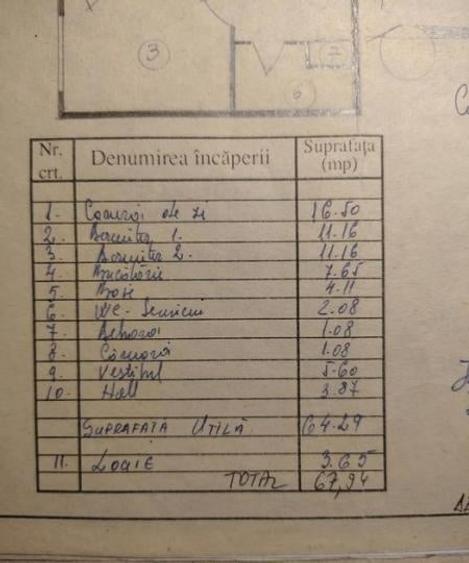 3
7
6
Nr. crt. Denumirea încăperii Suprafața (mp)
1. Cameră de zi 16.50
2. Dormitor 1. 11.16
3. Dormitor 2. 11.16
4. Bucătărie 7.65
5. Baie 4.11
6. WC-Serviciu 2.08
7. 1.08
8. Cămară 1.08
9. Vestibul 5.60
10. Hall 3.87
SUPRAFATA UTILĂ 64.29
11. LOGIE 3.65
TOTAL 67,94